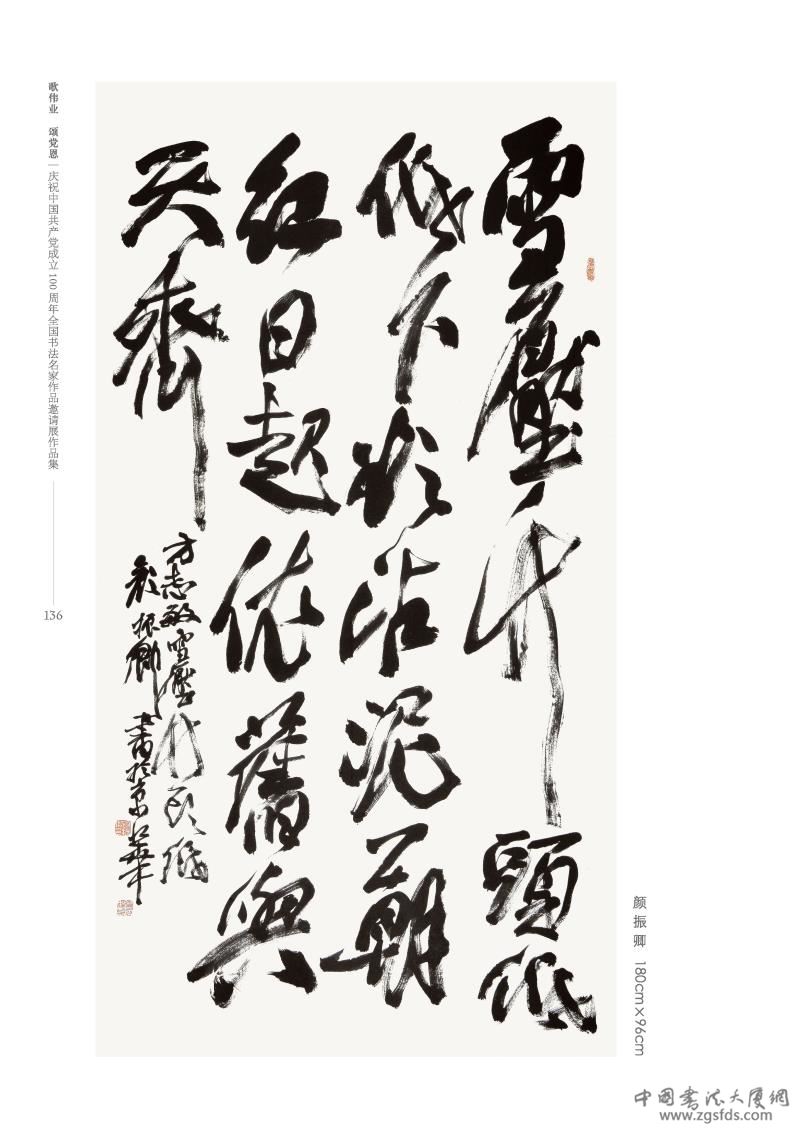 歌伟业 颂党恩 | 庆祝中国共产党成立100周年全国书法名家作品邀请展作品集
136
雪壓竹頭低
低下欲沾泥一朝
紅日起依舊與
天齊
方志敏雪壓竹头低
颜振卿書於京華
颜振卿 180cm×96cm
中国書法大厦網
www.zgsfds.com